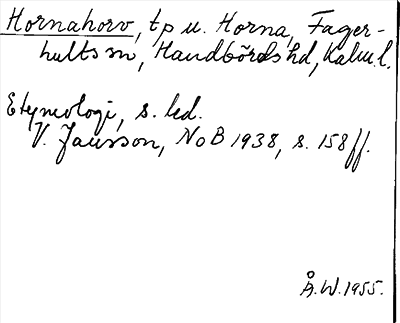 Hornahorv, tp u. Horna, Fager-
hults sn, Handbörds hd, Kalm.l.
Etymologi, s. led.
V. Jansson, NoB 1938, s. 158 ff.
Å.W. 1955.